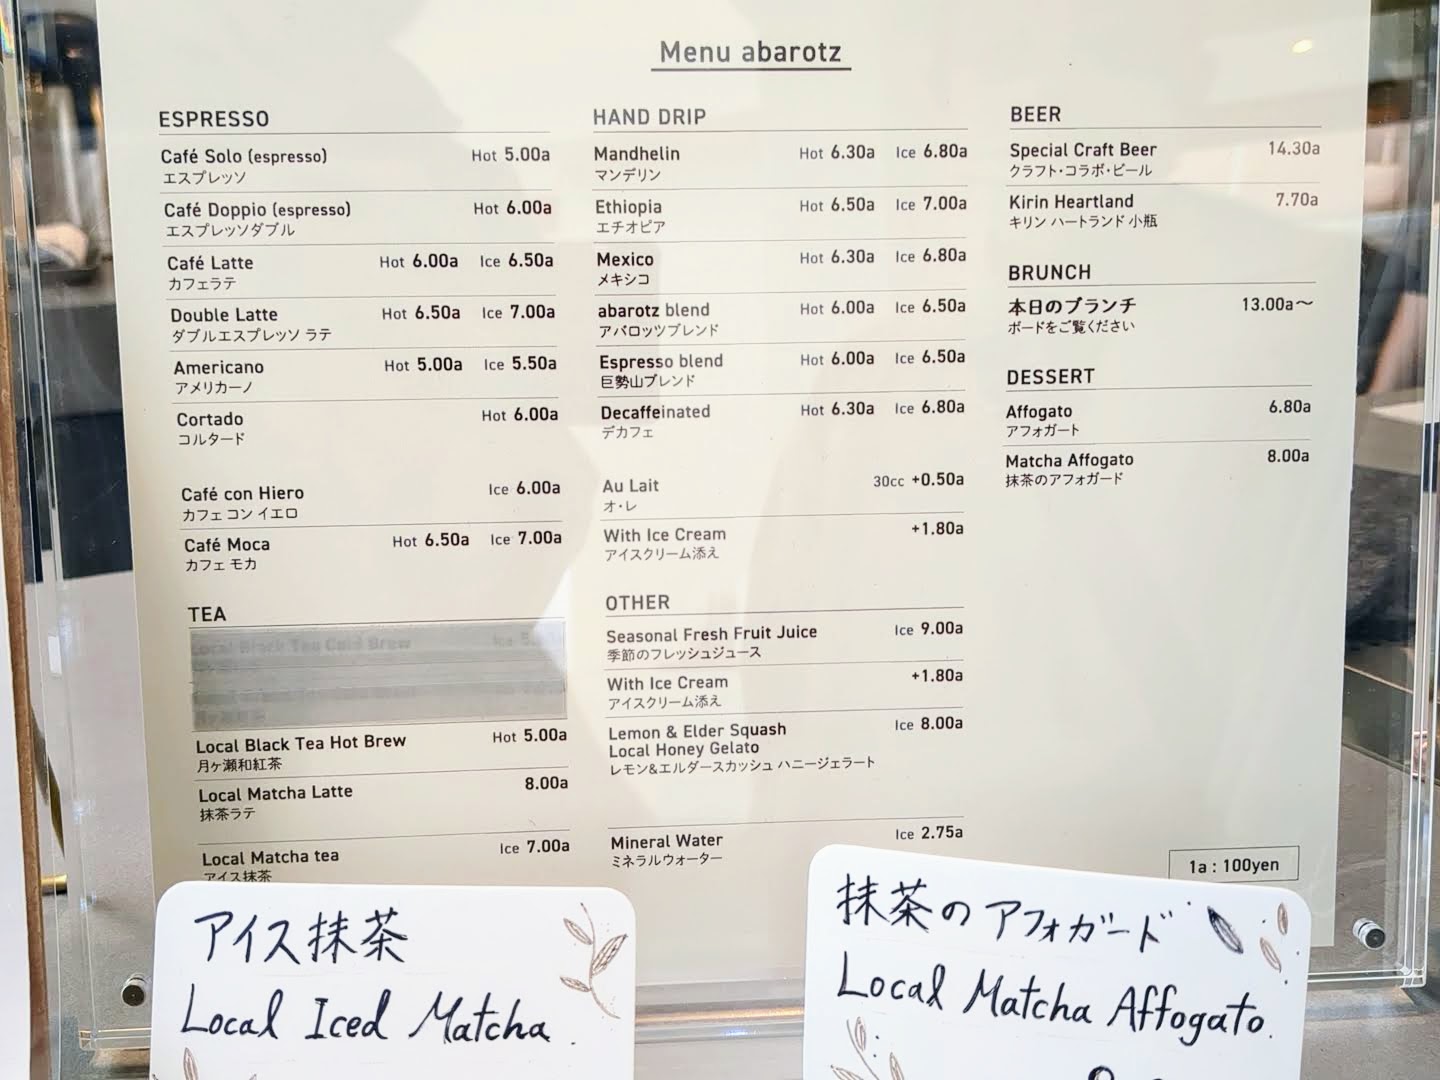 Menu abarotz
ESPRESSO
Café Solo (espresso) Hot 5.00a
エスプレッソ
Café Doppio (espresso) Hot 6.00a
エスプレッソダブル
Café Latte Hot 6.00a Ice 6.50a
カフェラテ
Double Latte Hot 6.50a Ice 7.00a
ダブルエスプレッソ ラテ
Americano Hot 5.00a Ice 5.50a
アメリカーノ
Cortado Hot 6.00a
コルタード
Café con Hiero Ice 6.00a
カフェ コン イエロ
Café Moca Hot 6.50a Ice 7.00a
カフェ モカ
TEA
Local Black Tea Cold Brew
Local Black Tea Hot Brew Hot 5.00a
月ヶ瀬和紅茶
Local Matcha Latte 8.00a
抹茶ラテ
Local Matcha tea Ice 7.00a
アイス抹茶
HAND DRIP
Mandhelin Hot 6.30a Ice 6.80a
マンデリン
Ethiopia Hot 6.50a Ice 7.00a
エチオピア
Mexico Hot 6.30a Ice 6.80a
メキシコ
abarotz blend Hot 6.00a Ice 6.50a
アバロッツブレンド
Espresso blend Hot 6.00a Ice 6.50a
巨勢山ブレンド
Decaffeinated Hot 6.30a Ice 6.80a
デカフェ
Au Lait 30cc +0.50a
オ・レ
With Ice Cream +1.80a
アイスクリーム添え
OTHER
Seasonal Fresh Fruit Juice Ice 9.00a
季節のフレッシュジュース
With Ice Cream +1.80a
アイスクリーム添え
Lemon & Elder Squash Ice 8.00a
Local Honey Gelato
レモン&エルダースカッシュ ハニージェラート
Mineral Water Ice 2.75a
ミネラルウォーター
BEER
Special Craft Beer 14.30a
クラフト・コラボ・ビール
Kirin Heartland 7.70a
キリン ハートランド 小瓶
BRUNCH
本日のブランチ 13.00a〜
ボードをご覧ください
DESSERT
Affogato 6.80a
アフォガート
Matcha Affogato 8.00a
抹茶のアフォガード
1a : 100yen
アイス抹茶
Local Iced Matcha.
抹茶のアフォガード
Local Matcha Affogato.